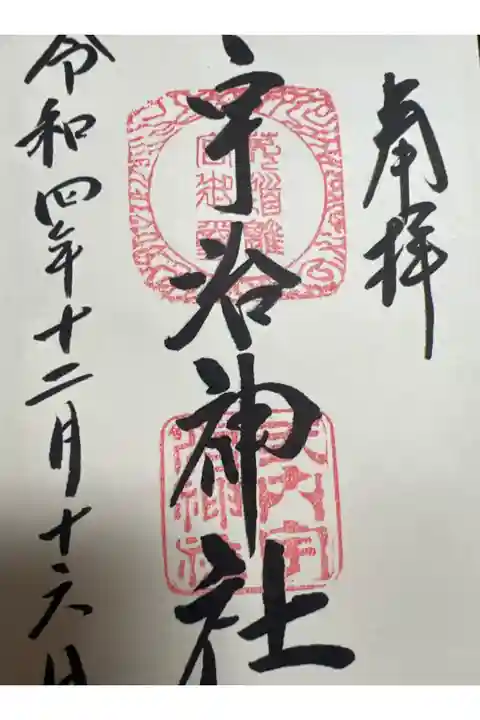 奉拝
宇治神社
令和四年十二月十六日